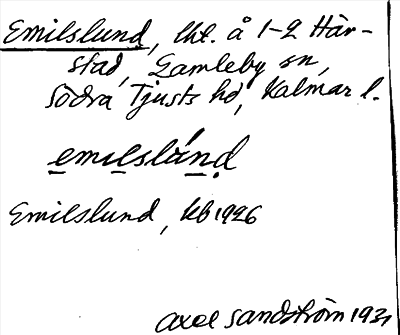 Emilslund, lht. å 1-2 Här-
stad, Gamleby sn,
Södra Tjusts hd, Kalmar l.
emilslánd
Emilslund, kb 1926
Axel Sandström 1931